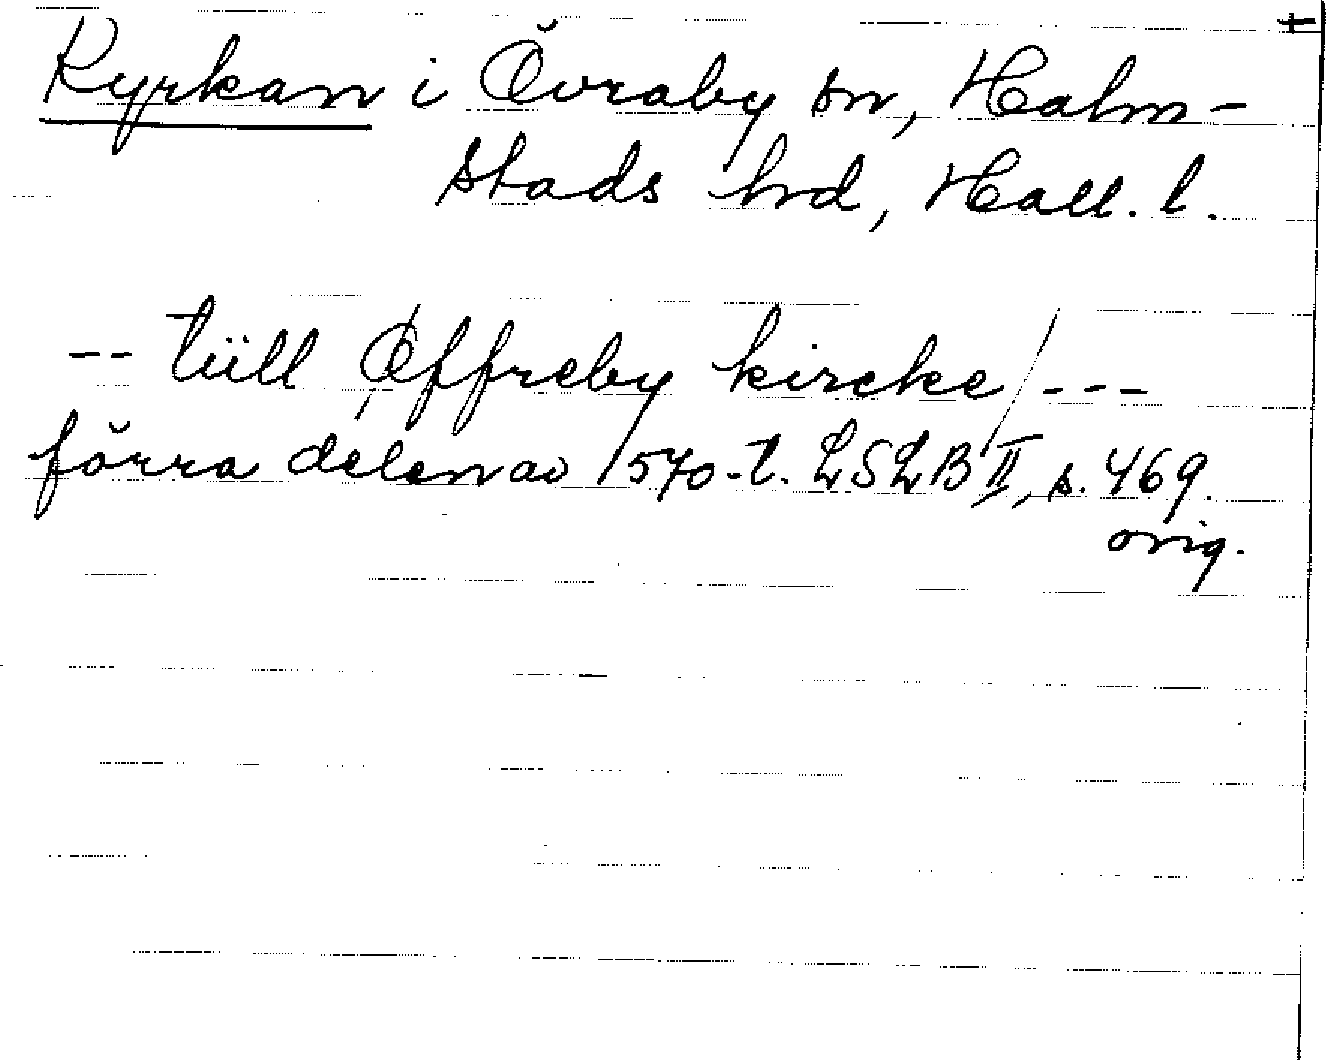 Kyrkan i Övraby sn, Halm-
stads hrd, Hall. l.
-- tiill Øffreby kircke/ ---
förra delen av 1570-t. LSLB II, s. 469.
orig.